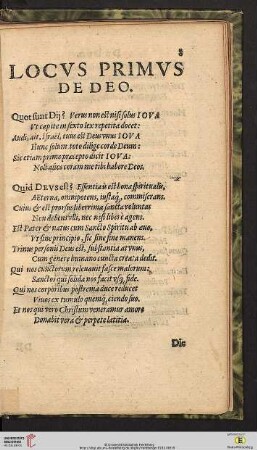 8
LOCVS PRIMVS
DE DEO.
Quot sunt Dij? Verus non est nisi solus IOVA
Vt capite in sexto lex repetita docet:
Audi, ait, Israel, tuus est Deus vnus IOVA
Hunc solum toto dilige corde Deum:
Sic etiam primo præcepto dicit IOVA:
Nob alios coram me tibi habere Deos.
Quid DEVS est? Essentia est bona spiritualis,
Aeterna, omnipotens, iustaq́, commiserans.
Cuius & est prorsus liberrima sancta voluntas
Non debens vlli, nec nisi libere agens.
Est Pater & natus cum Sancto Spiritu ab æuo,
Vt sine principio, sic sine fine manens.
Trinus personis Deus est, substantia at vnus,
Cum genere humano cuncta creata dedit.
Qui nos cunctorum releuauit fasce malorum:
Sanctos qui solida nos facit vsq́; fide.
Qui nos corporibus postrema luce reiunctet
Viuos ex tumulo quemq́; ciendo suo.
Et nos qui vero Christum veneramur amore
Donabit vera & perpete lætitia.
Dic